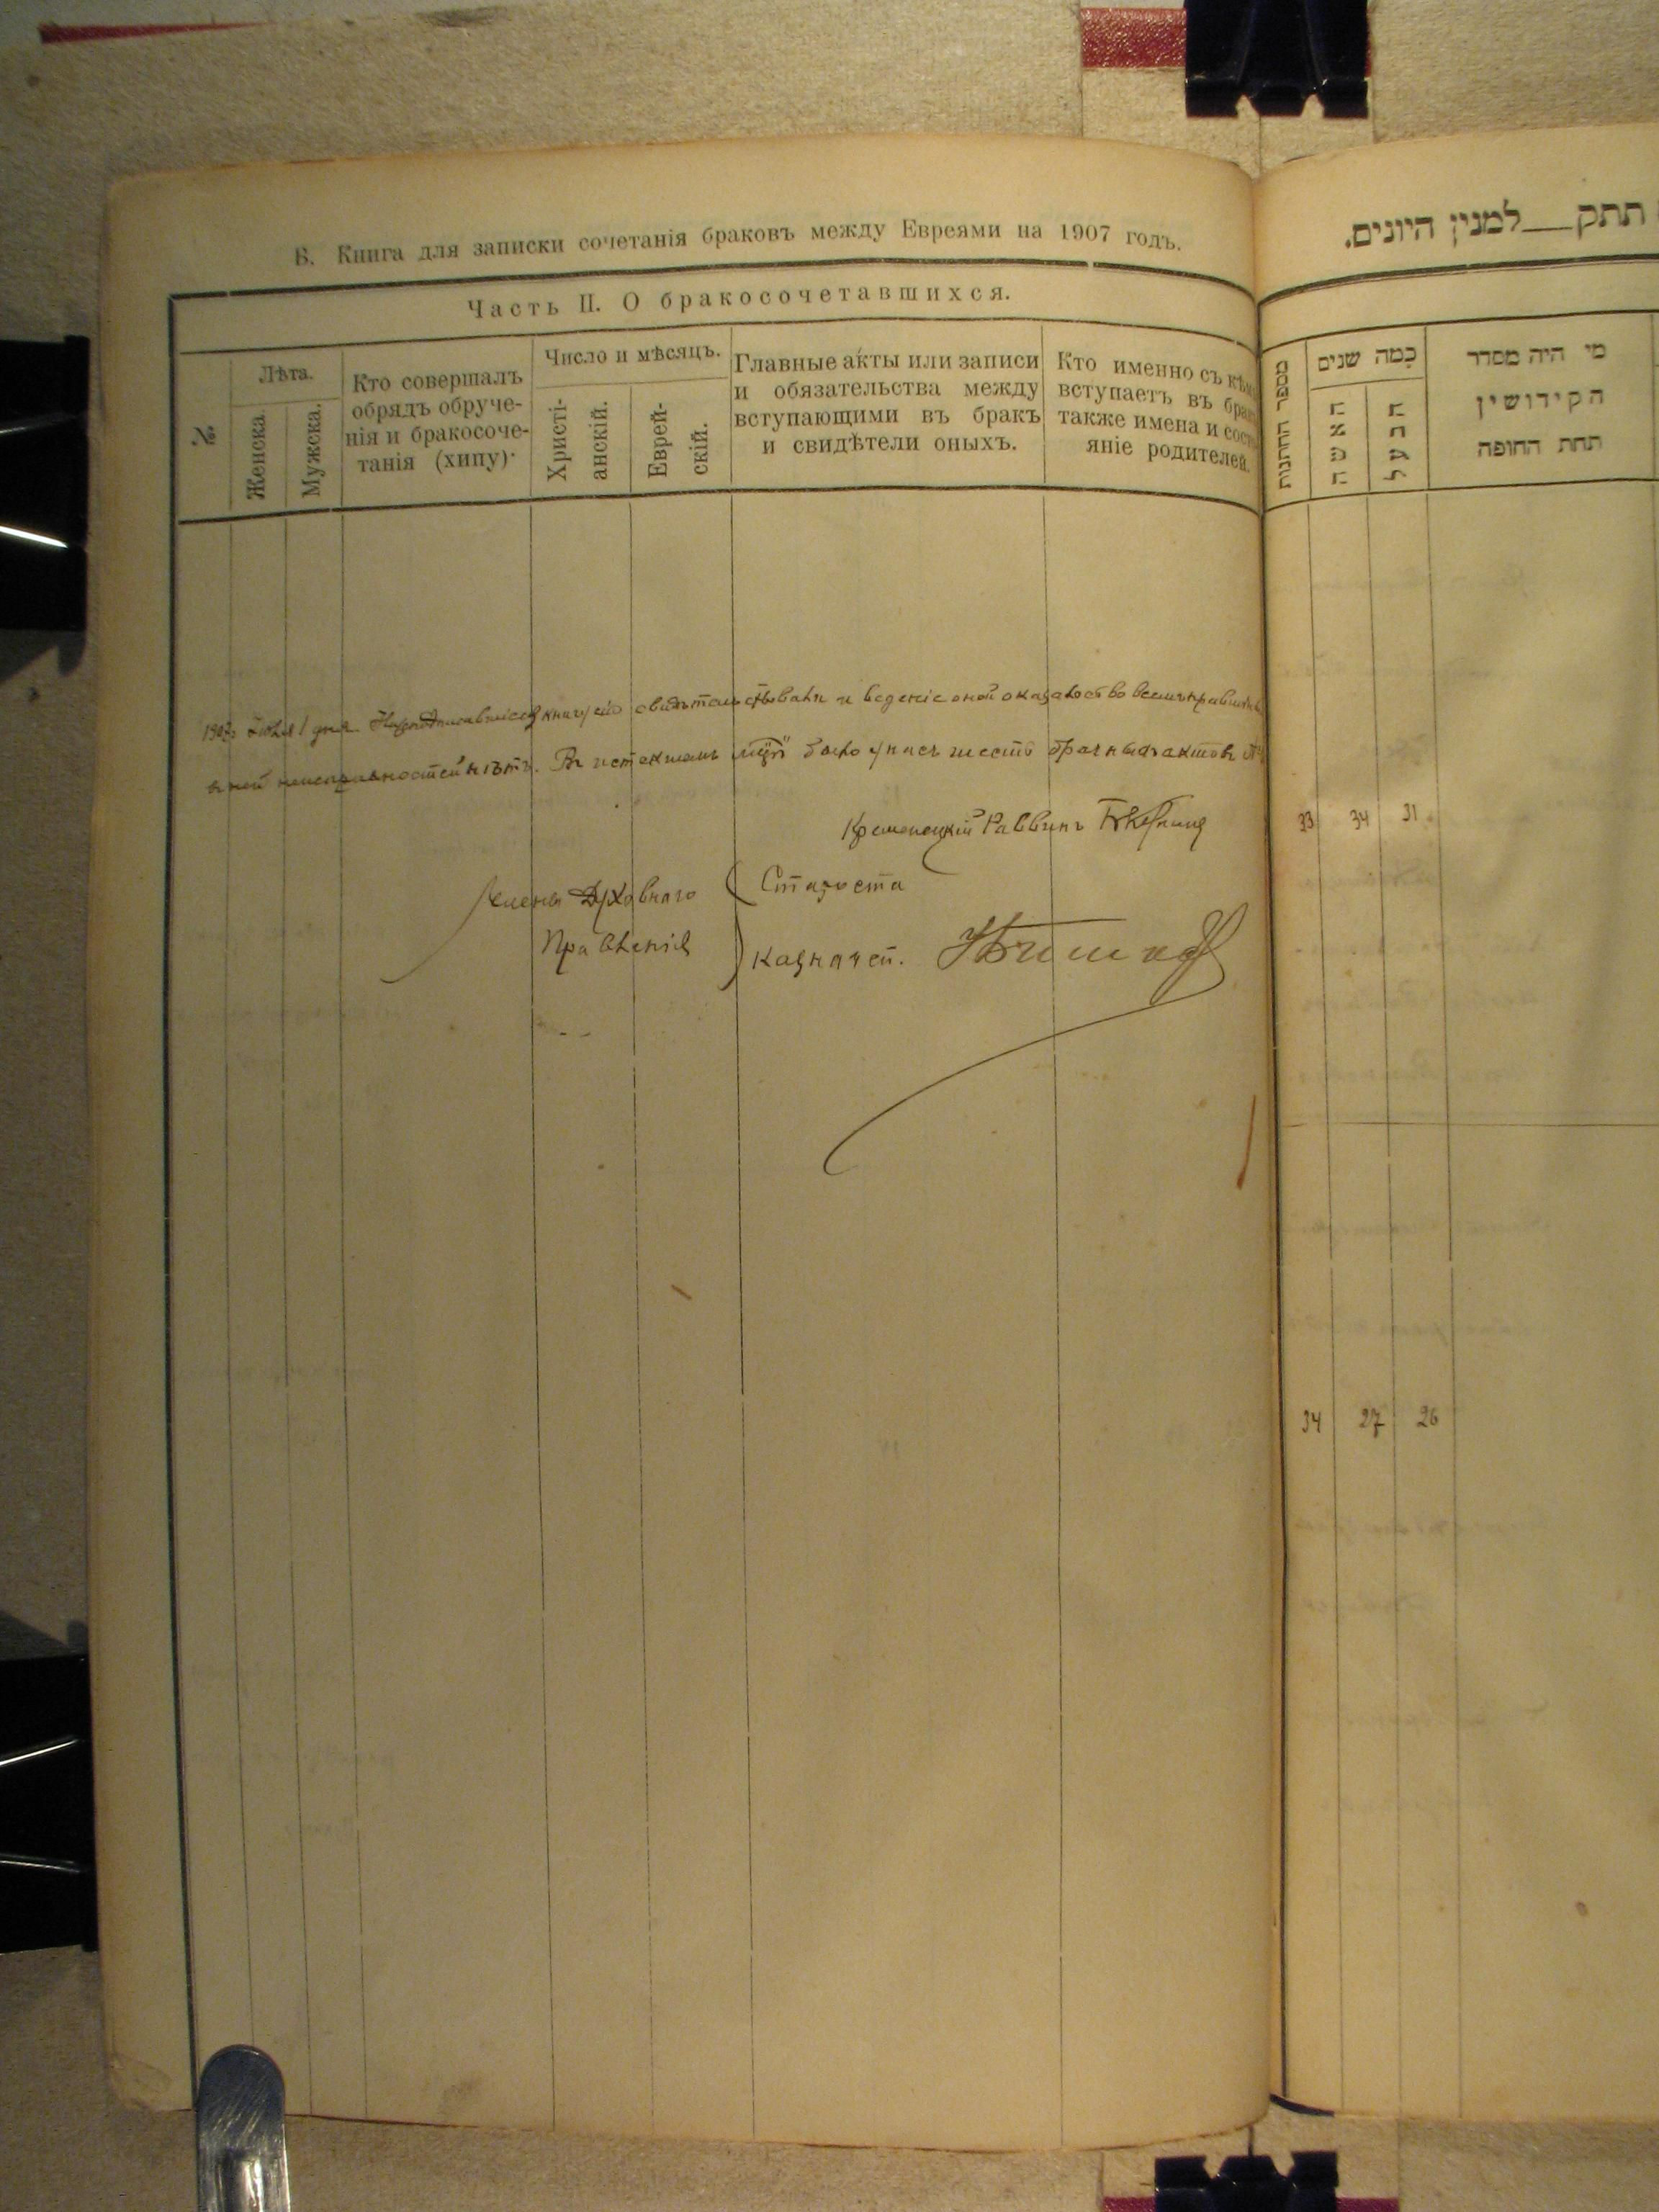 В. Книга для записки сочетанія браковъ между Евреями на 1907 годъ.
Часть II. О бракосочетавшихся.
№
Лѣта.
Женска.
Мужска.
Кто совершалъ
обрядъ обруче-
нія и бракосоче-
танія (хипу).
Число и мѣсяцъ.
Христі-
анскій.
Еврей-
скій.
Главные акты или записи
и обязательства между
вступающими въ бракъ
и свидѣтели оныхъ.
Кто именно съ кѣмъ
вступаетъ въ бра
также имена и сост
яніе родителей.
1907 Іюня 1 дня книгу сію свидѣтельствовали и веденіе оной оказалось во всемъ
в ней неисправностей нѣтъ. Въ истекшемъ было у насъ шесть брачныхъ актовъ
Кременецкій Раввинъ
Члены Духовнаго
Правленія
Староста
Казначей.
תתק__למנין היונים.
מספר החתנות
כמה שנים
האשה
הבעל
מי היה מסדר
הקידושין
תחת החופה
33 34 31
34 27 26